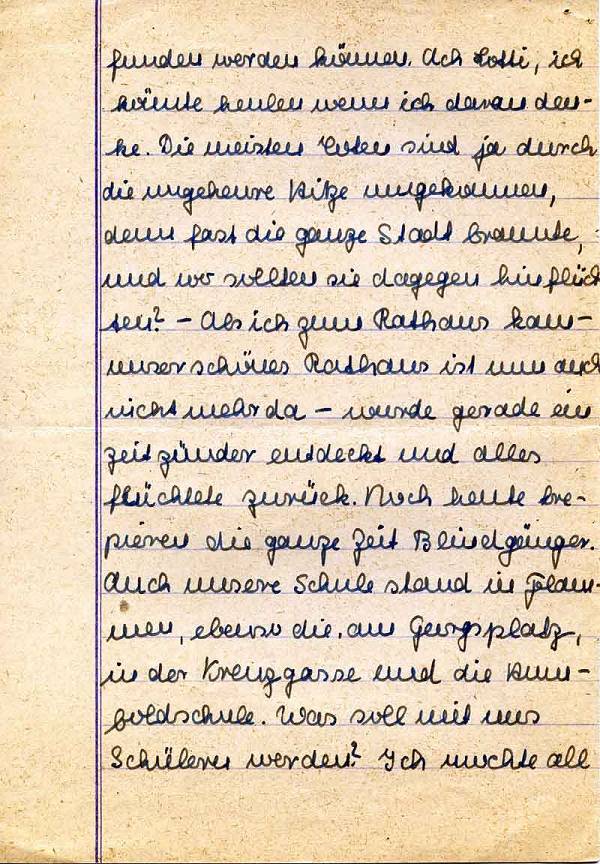 funden werden können. Ach Lotti, ich
könnte heulen wenn ich daran den-
ke. Die meisten Toten sind ja durch
die ungeheure Hitze umgekommen,
denn fast die ganze Stadt brannte,
und wo sollten sie dagegen hinflüch
ten? – Als ich zum Rathaus kam –
unser schönes Rathaus ist nun auch
nicht mehr da – wurde gerade ein
Zeitzünder entdeckt und alles
flüchtete zurück. Noch heute kre-
pieren die ganze Zeit Blindgänger.
Auch unsere Schule stand in Flam-
men, ebenso die am Georgsplatz,
in der Kreuzgasse und die Hum-
boldschule. Was soll mit uns
Schülern werden? Ich mochte all